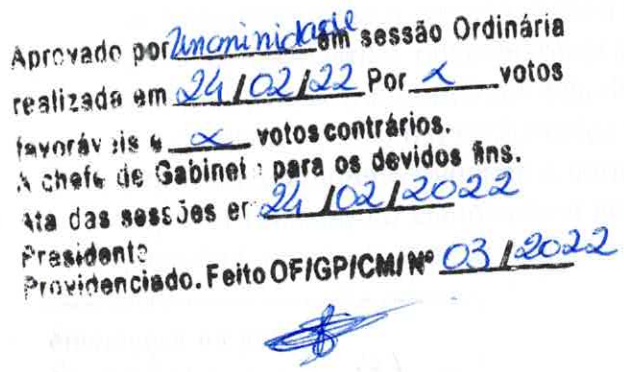 Aprovado por Unanimidade em sessão Ordinária
realizada em 24/02/22 Por x votos
favoráveis e x votos contrários.
A chefe de Gabinete para os devidos fins.
Ata das sessões em 24/02/2022
Presidente
Providenciado. Feito OF/GP/CMI Nº 03/2022